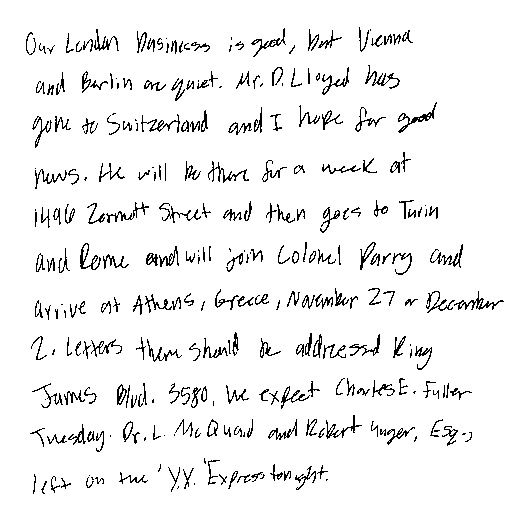 Our London business is good, but Vienna
and Berlin are quiet. Mr. D. Lloyd has
gone to Switzerland and I hope for good
news. He will be there for a week at
1496 Zermott Street and then goes to Turin
and Rome and will join Colonel Parry and
arrive at Athens, Greece, November 27 or December
2. Letters there should be addressed King
James Blvd. 3580. We expect Charles E. Fuller
Tuesday. Dr. L. McQuaid and Robert Unger, Esq.,
left on the 'Y.X.' Express tonight.